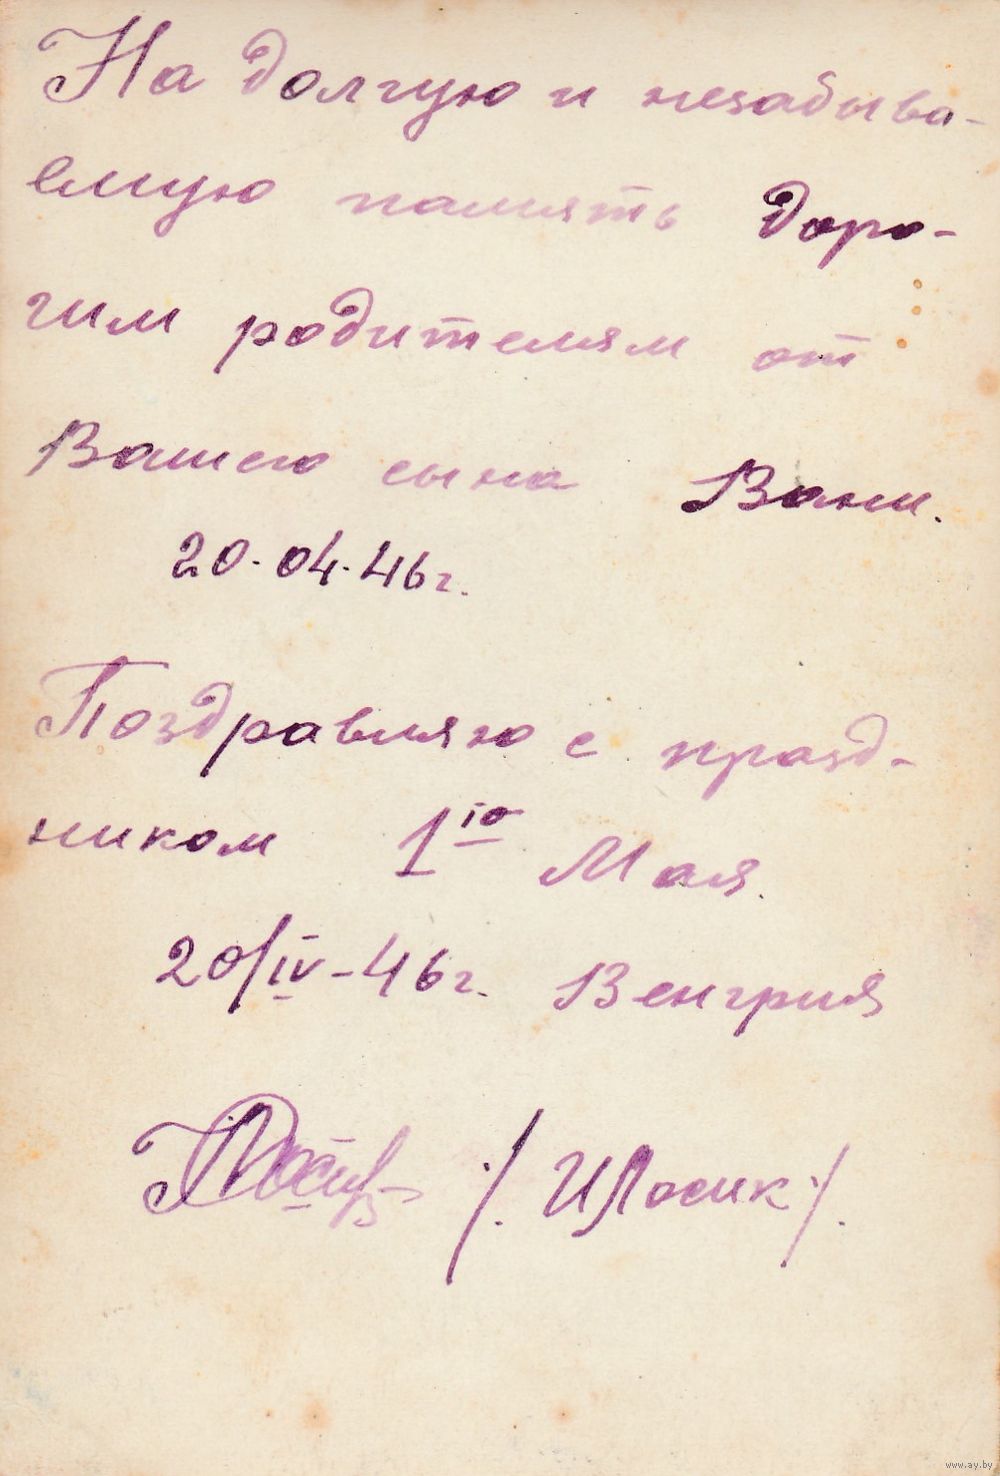 На долгую и незабыва-
емую память доро-
гим родителям от
Вашего сына Вани.
20.04.46г.
Поздравляю с празд-
ником 1го Мая.
20/IV-46г. Венгрия
/. ИЛосик /.
www.ay.by